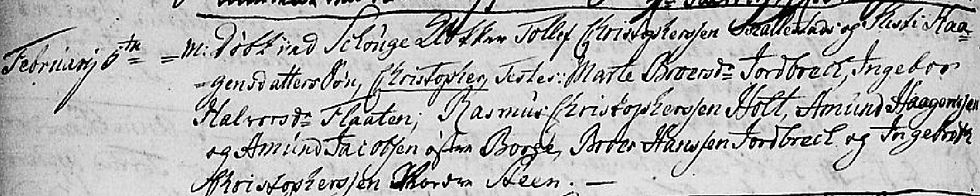 Februarij 6th = m: döbt ind Schöuge Tollef Christophersen og Kirsti Haa-
gensdatters Sön, Christopher, Testes: Marte Broersd: Jordbreck, Ingebor
Halvorsd: Flaaten; Rasmus Christophersen Holt, Amund Haagensen
og Amund Jacobsen Borge, Broer Hanssen Jordbreck og Ingebrikt
Christophersen Steen. —